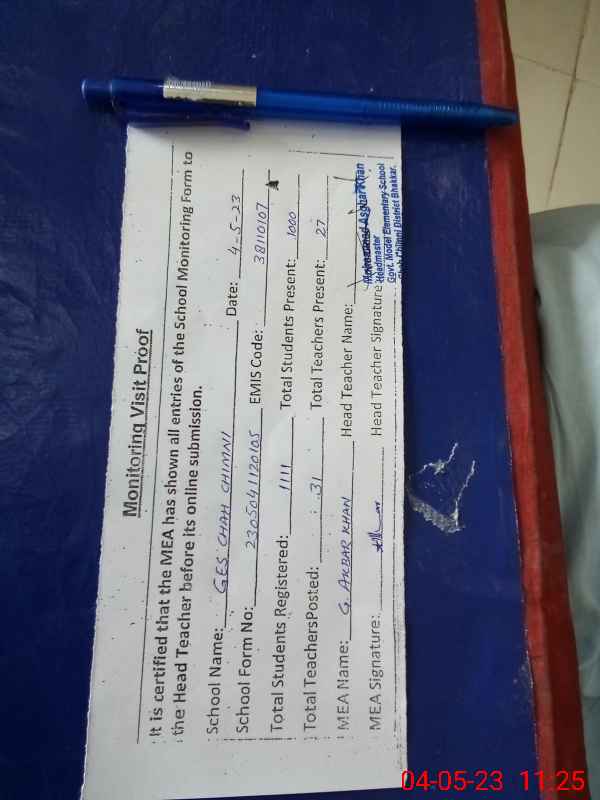 Monitoring Visit Proof
It is certified that the MEA has shown all entries of the School Monitoring Form to
the Head Teacher before its online submission.
School Name: GES CHAH CHIMNI Date: 4-5-23
School Form No: 2305041120105 EMIS Code: 38110107
Total Students Registered: 1111 Total Students Present: 1000
Total TeachersPosted: 31 Total Teachers Present: 27
MEA Name: G. AKBAR KHAN Head Teacher Name:
MEA Signature: Head Teacher Signature
Muhammad Asghar Khan
Headmaster
Govt. Model Elementary School
Chah Chimni District Bhakkar.
04-05-23 11:25